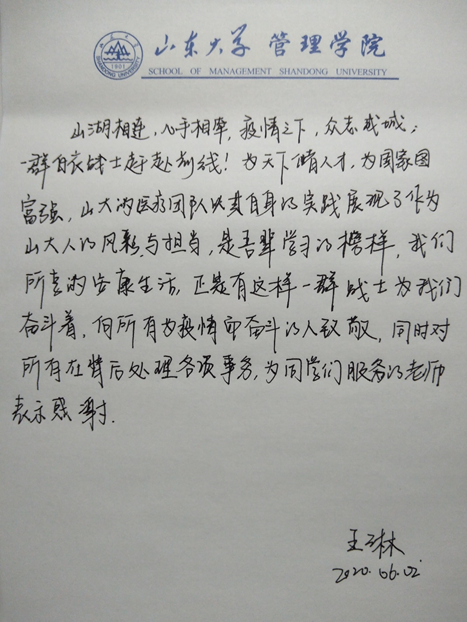 山东大学 管理学院
SCHOOL OF MANAGEMENT SHANDONG UNIVERSITY
SHANDONG UNIVERSITY
1901
山湖相连，心手相牵，疫情之下，众志成城；
一群白衣战士奔赴前线！为天下储人才，为国家图
富强，山大的医疗团队以其自身的实践展现了作为
山大人的风彩与担当，是吾辈学习的榜样，我们
所享的安康生活，正是有这样一群战士为我们
奋斗着，向所有为疫情而奋斗的人致敬，同时对
所有在背后处理各项事务，为同学们服务的老师
表示感谢.
王琳
2020.06.02